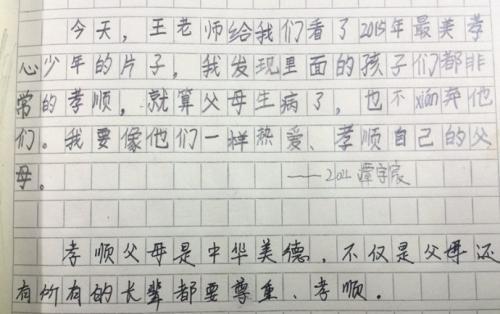 今天，王老师给我们看了2015年最美孝
心少年的片子，我发现里面的孩子们都非
常的孝顺，就算父母生病了，也不xián弃他
们。我要像他们一样热爱、孝顺自己的父
母。 ——
孝顺父母是中华美德，不仅是父母还
有所有的长辈都要尊重、孝顺。